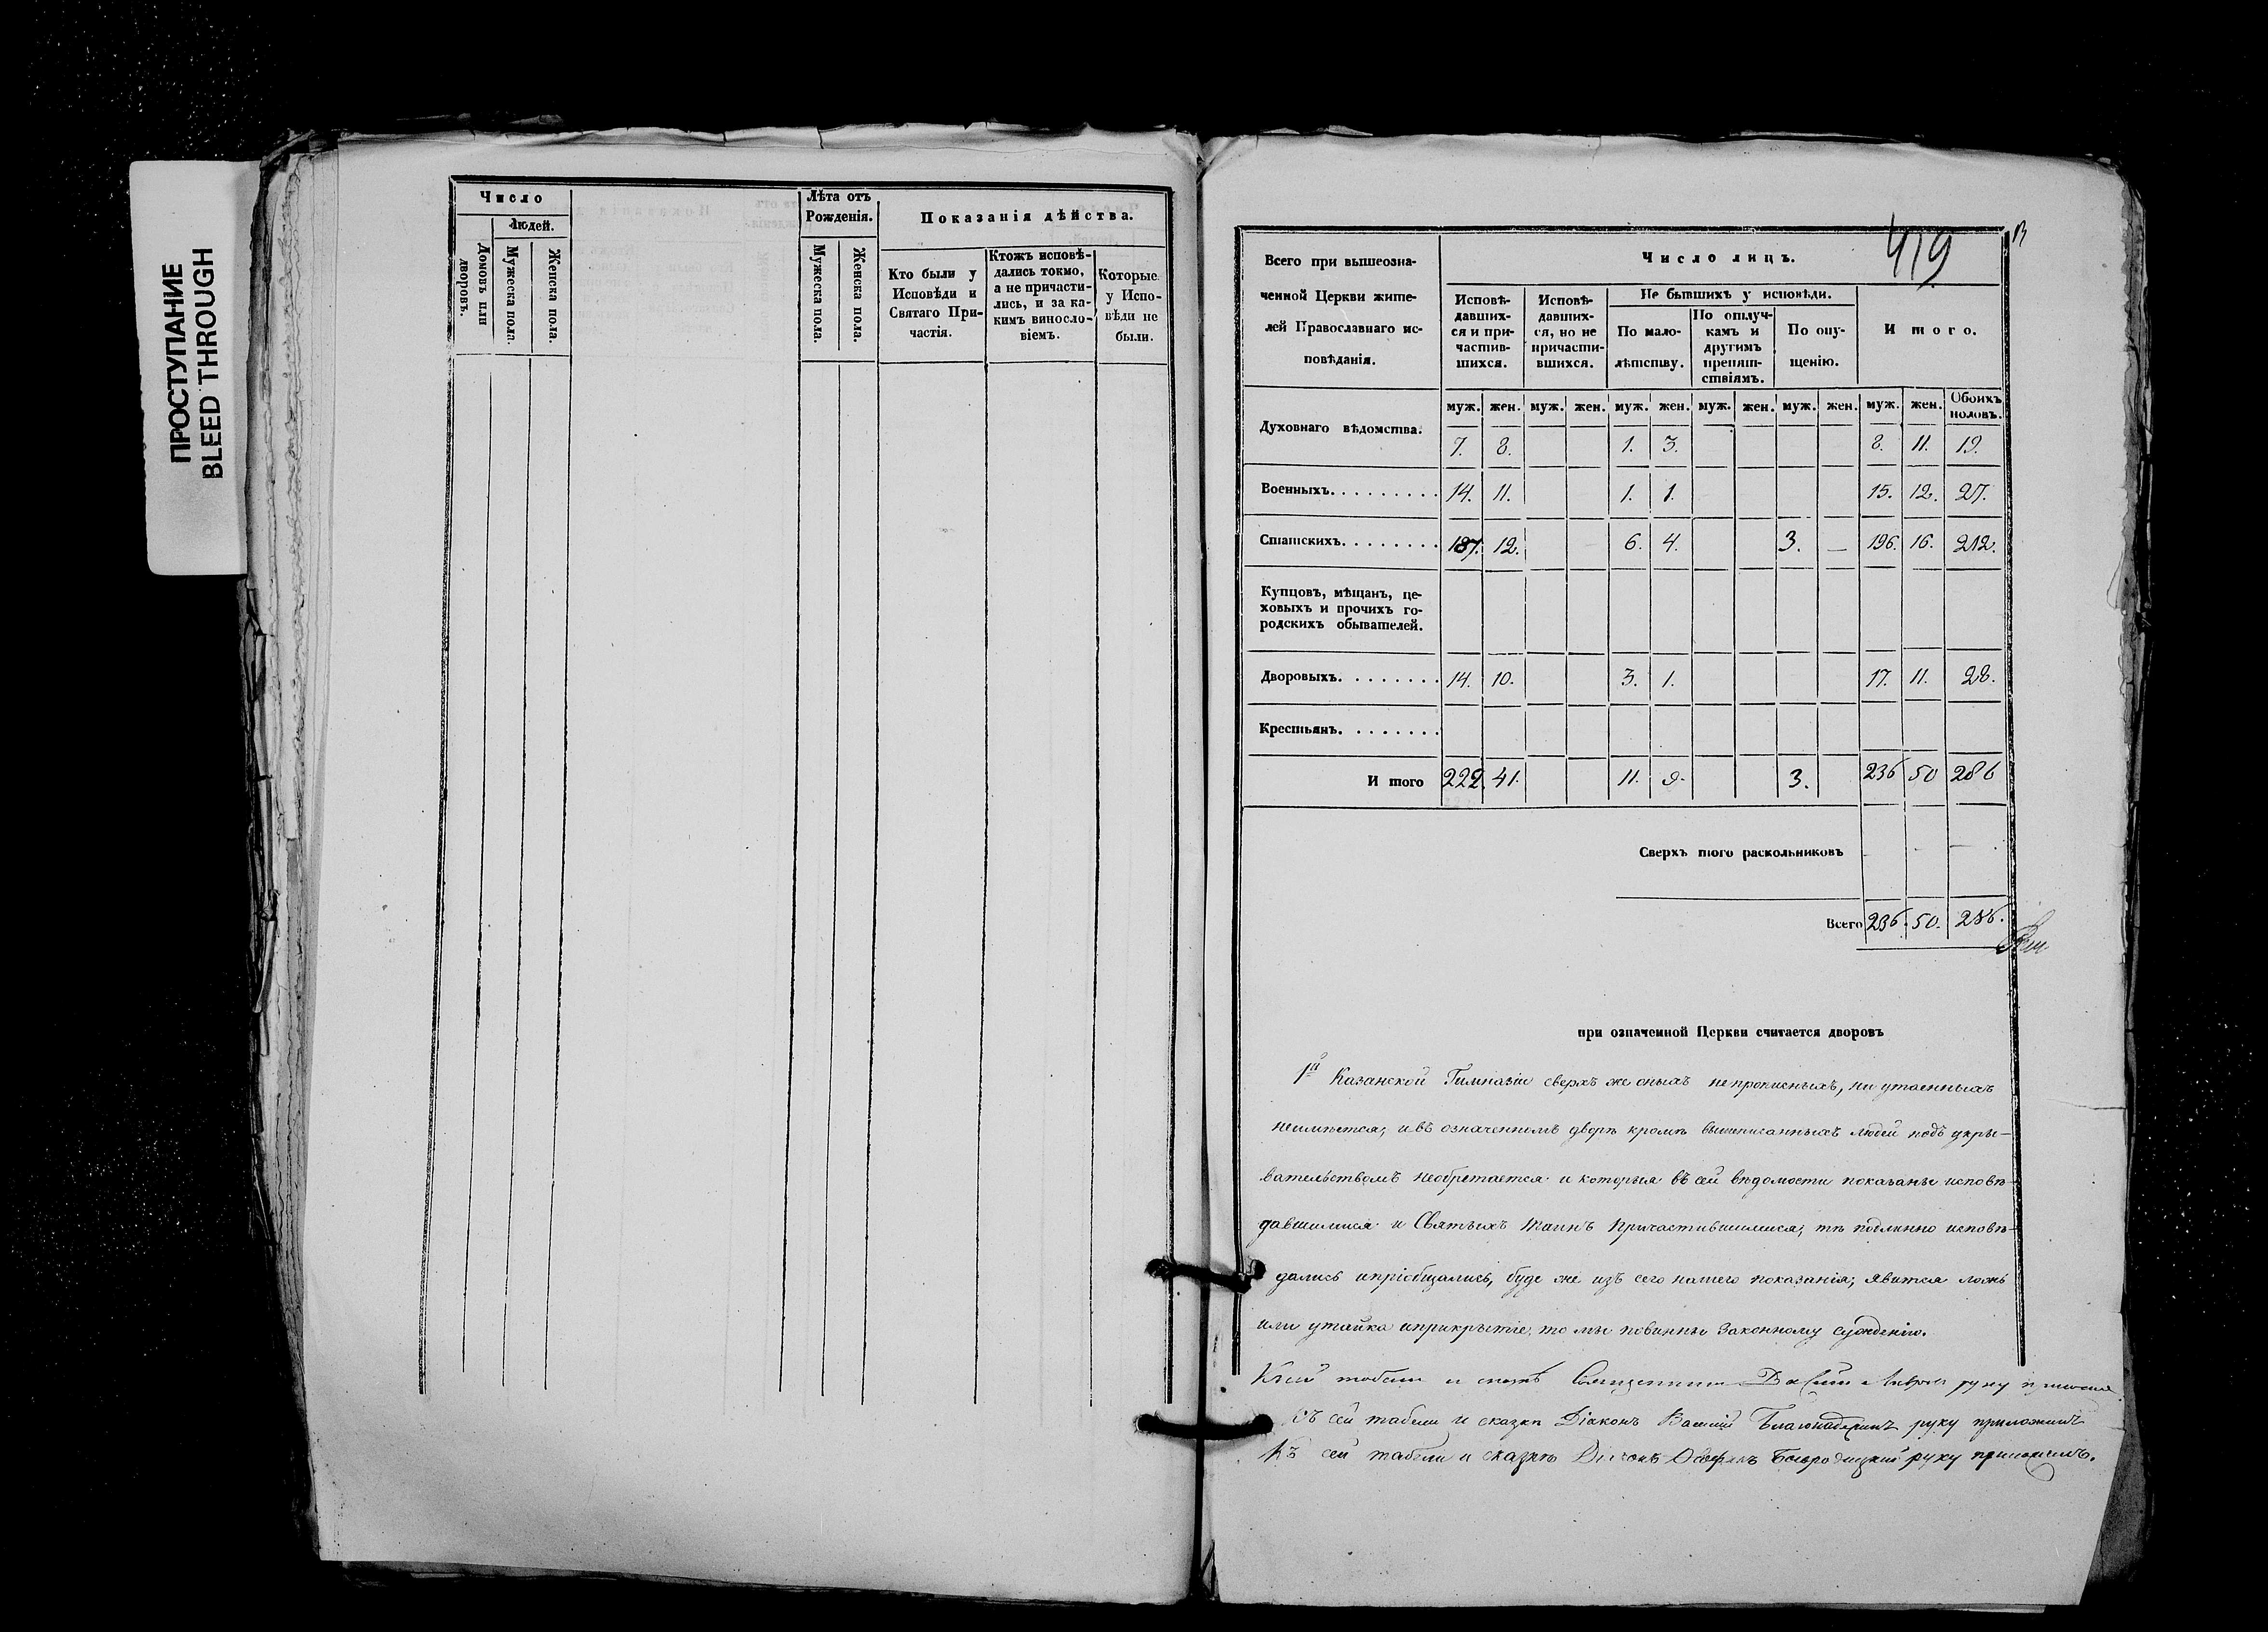 ПРОСТУПАНИЕ
BLEED THROUGH
Число
Людей.
Домовъ или дворовъ.
Мужеска пола.
Женска пола.
Лѣта отъ
Рожденія.
Мужеска пола.
Женска пола.
Показанія дѣйства.
Кто были у
Исповѣди и
Святаго При-
частія.
Ктожъ исповѣ-
дались токмо,
а не причасти-
лись, и за ка-
кимъ виносло-
віемъ.
Которые
у Испо-
вѣди не
были.
419
Всего при вышеозна-
ченной Церкви жите-
лей Православнаго ис-
повѣданія.
Число лицъ.
Исповѣ-
давших-
ся и при-
частив-
шихся.
Исповѣ-
давших-
ся, но не
причасти-
вшихся.
Не бывшихъ у исповѣди.
По мало-
лѣтству.
По отлуч-
камъ и
другимъ
препят-
ствіямъ.
По опу-
щенію.
Итого.
муж. жен. муж. жен. муж. жен. муж. жен. муж. жен. муж. жен. Обоихъ половъ.
Духовнаго вѣдомства. 7. 8. 1. 3. 8. 11. 19.
Военныхъ......... 14. 11. 1. 1. 15. 12. 27.
Статскихъ........ 187. 12. 6. 4. 3. — 196. 16. 212.
Купцовъ, мѣщанъ, це-
ховыхъ и прочихъ го-
родскихъ обывателей.
Дворовыхъ........ 14. 10. 3. 1. 17. 11. 28.
Крестьянъ.......
Итого 222. 41. 11. 9. 3. 236 50 286
Сверхъ того раскольниковъ — — —
Всего 236. 50. 286.
при означенной Церкви считается дворовъ
1й Казанской Гимназіи сверхъ же оныхъ непрописныхъ, ни утаенныхъ
неимѣется; и въ означенномъ дворѣ кромѣ вышеписанныхъ людей подъ укры-
вательствомъ необретается и которыя въ сей вѣдомости показаны исповѣ-
давшимися и Святыхъ Таинъ Причастившимися; тѣ подлинно исповѣ-
дались и пріобщались, буде же изъ сего нашего показанія, явится ложь
или утайка и прикрытіе, то мы повинны Законному сужденію.
Къ сей табели и сказкѣ Священникъ руку приложилъ
Къ сей табели и сказкѣ Діаконъ Василій руку приложилъ
Къ сей табели и сказкѣ Богородицкій руку приложилъ.